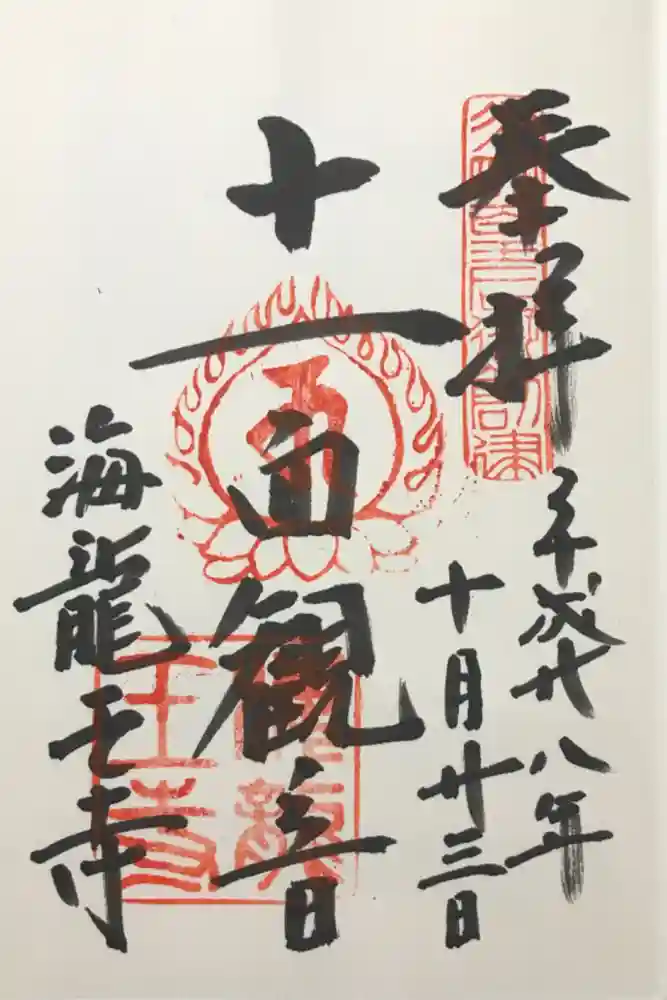 奉拝
平成廿八年
十月廿三日
十一面観音
海龍王寺
海龍
王寺